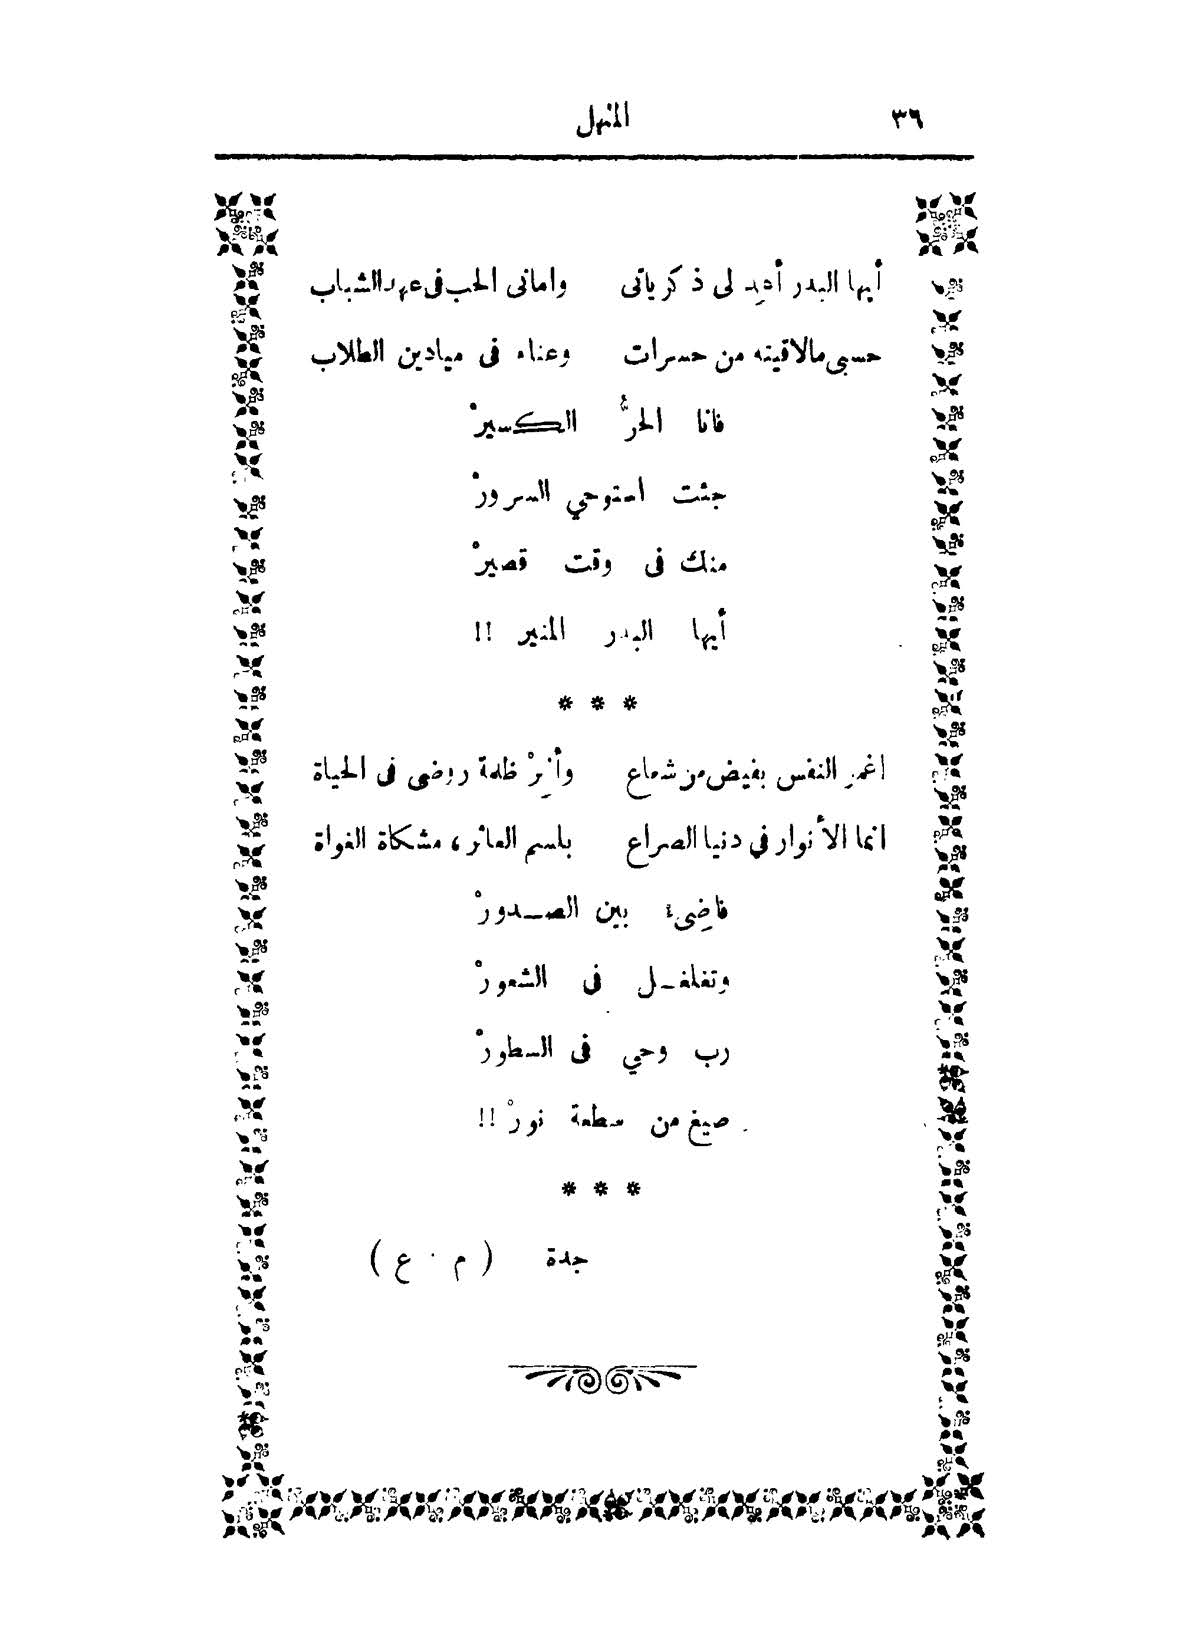 ٣٦ المنهل
أيها البدر أعِد لى ذكرياتى وامانى الحب فى عهد الشباب
حسبى مالاقيته من حسرات وعناء فى ميادين الطلاب
فانا الحرُّ الكسيرْ
جئت استوحي السرورْ
منك فى وقت قصيرْ
أيها البدر المنير !!
* * *
اغمر النفس بفيض من شعاع وأنِرْ ظلمة روضى فى الحياة
انما الأنوار في دنيا الصراع بلسم العاثر، مشكاة الغواة
فاضِىء بين الصـدورْ
وتغلغـل فى الشعورْ
رب وحي فى السطورْ
صيغ من سطعة نورْ !!
* * *
جدة ( م . ع )